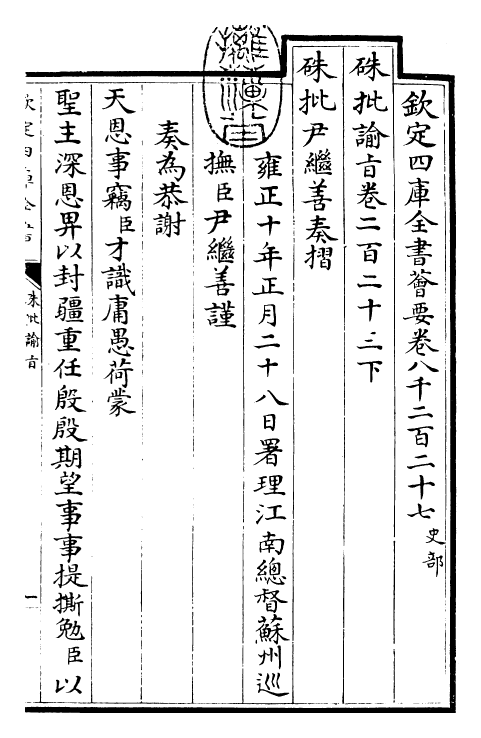 欽定四庫全書薈要卷八千二百二十七 史部
硃批諭旨卷二百二十三下
硃批尹繼善奏摺
雍正十年正月二十八日署理江南總督蘇州巡
撫臣尹繼善謹
奏為恭謝
天恩事竊臣才識庸愚荷蒙
聖主深恩畀以封疆重任殷殷期望事事提撕勉臣以
硃批諭旨
一